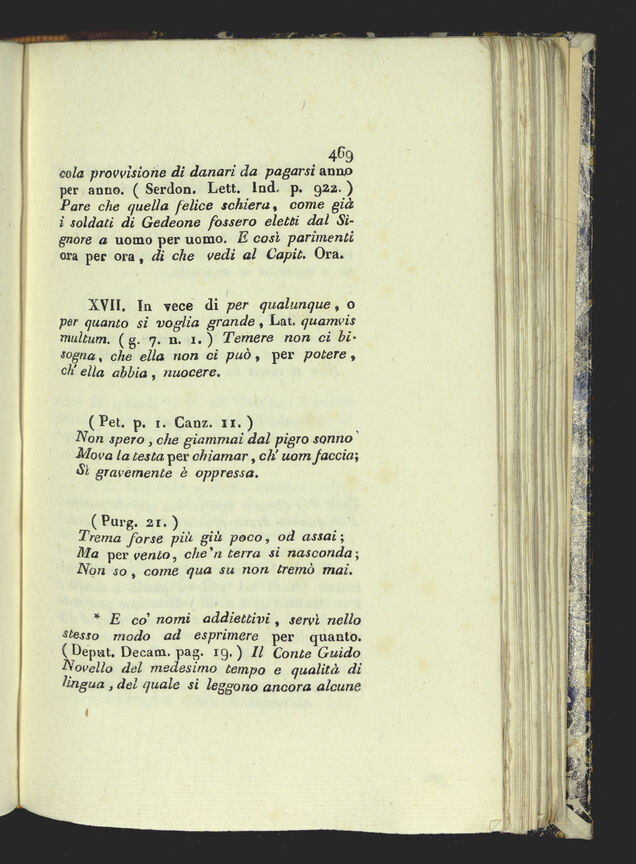 469
cola provvisione di danari da pagarsi anno
per anno. ( Serdon. Lett. Ind. p. 922. )
Pare che quella felice schiera, come già
i soldati di Gedeone fossero eletti dal Si-
gnore a uomo per uomo. E così parimenti
ora per ora, di che vedi al Capit. Ora.
XVII. In vece di per qualunque, o
per quanto si voglia grande, Lat. quamvis
multum. ( g. 7. n. 1. ) Temere non ci bi-
sogna, che ella non ci può, per potere,
ch' ella abbia, nuocere.
( Pet. p. 1. Canz. 11. )
Non spero, che giammai dal pigro sonno
Mova la testa per chiamar, ch' uom faccia;
Sì gravemente è oppressa.
( Purg. 21. )
Trema forse più giù poco, od assai;
Ma per vento, che'n terra si nasconda;
Non so, come qua su non tremò mai.
* E co' nomi addiettivi, servì nello
stesso modo ad esprimere per quanto.
( Deput. Decam. pag. 19. ) Il Conte Guido
Novello del medesimo tempo e qualità di
lingua, del quale si leggono ancora alcune